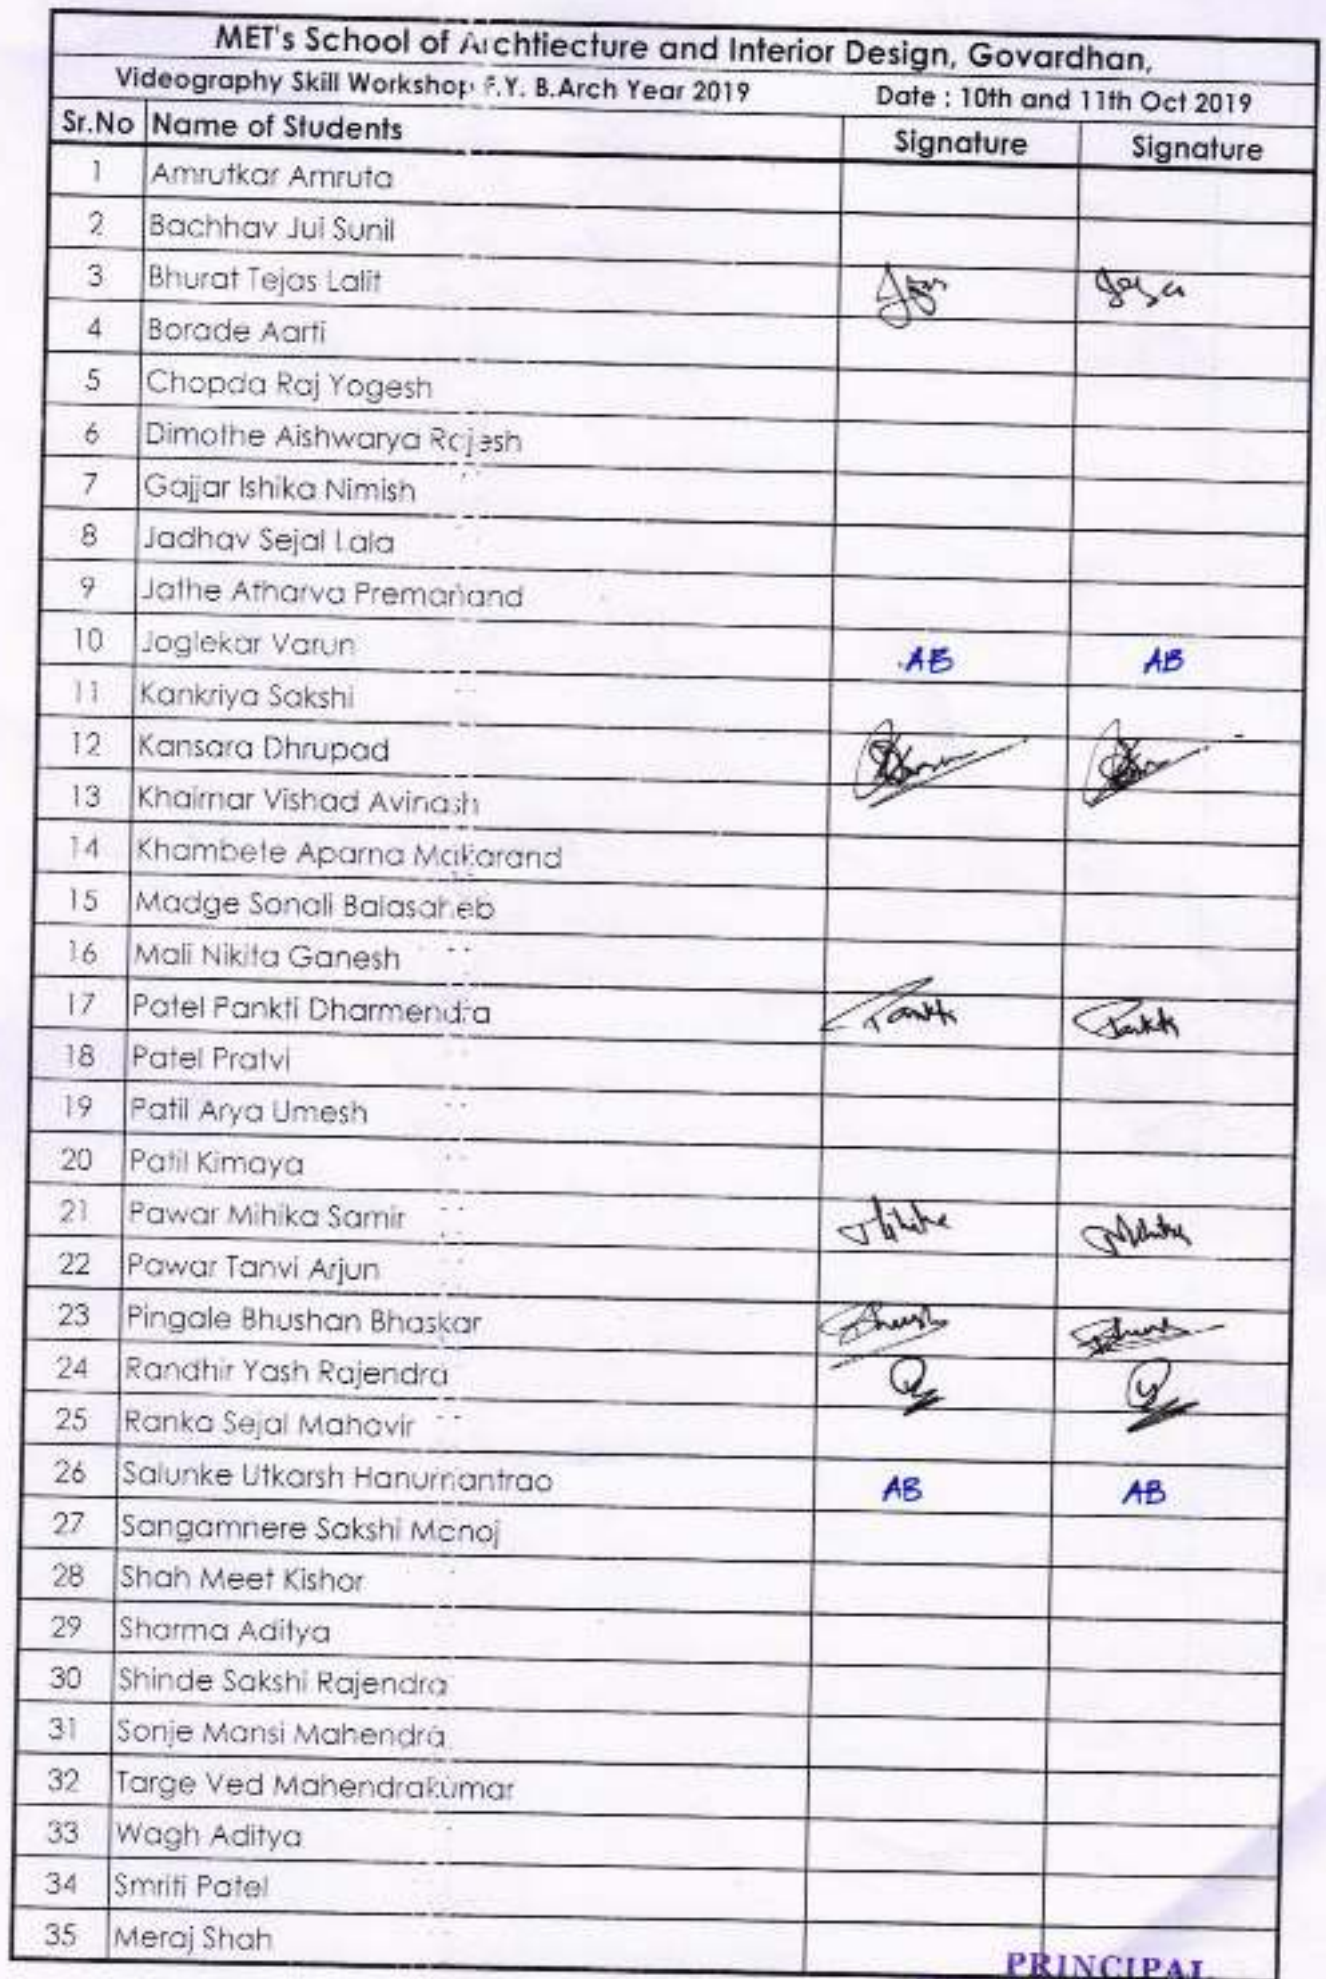 MET's School of Archtiecture and Interior Design, Govardhan,
Videography Skill Workshop F.Y. B.Arch Year 2019 Date : 10th and 11th Oct 2019
Sr.No Name of Students Signature Signature
1 Amrutkar Amruta
2 Bachhav Jui Sunil
3 Bhurat Tejas Lalit
4 Borade Aarti
5 Chopda Raj Yogesh
6 Dimothe Aishwarya Rajesh
7 Gajjar Ishika Nimish
8 Jadhav Sejal Lala
9 Jathe Atharva Premanand
10 Joglekar Varun AB AB
11 Kankriya Sakshi
12 Kansara Dhrupad
13 Khairnar Vishad Avinash
14 Khambete Aparna Makarand
15 Madge Sonali Balasaheb
16 Mali Nikita Ganesh
17 Patel Pankti Dharmendra
18 Patel Pratvi
19 Patil Arya Umesh
20 Patil Kimaya
21 Pawar Mihika Samir
22 Pawar Tanvi Arjun
23 Pingale Bhushan Bhaskar
24 Randhir Yash Rajendra
25 Ranka Sejal Mahavir
26 Salunke Utkarsh Hanumantrao AB AB
27 Sangamnere Sakshi Manoj
28 Shah Meet Kishor
29 Sharma Aditya
30 Shinde Sakshi Rajendra
31 Sonje Mansi Mahendra
32 Targe Ved Mahendrakumar
33 Wagh Aditya
34 Smriti Patel
35 Meraj Shah
PRINCIPAL